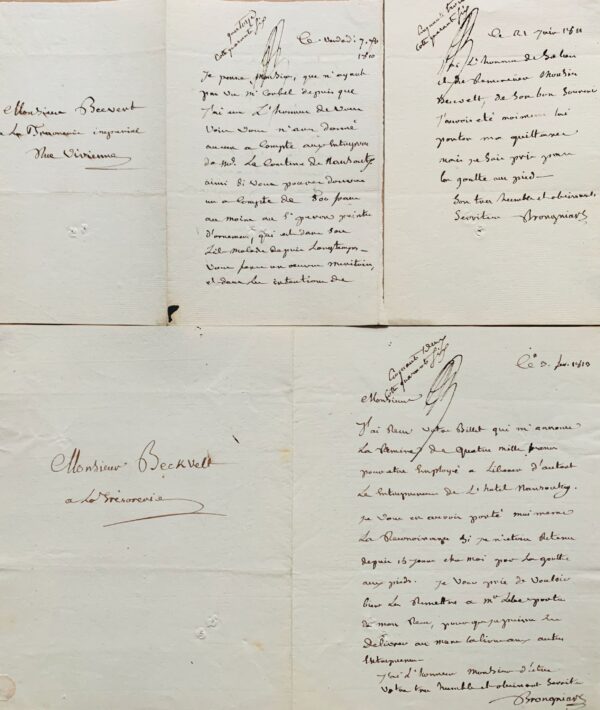 Monsieur Becvert
a La Tresorerie imperial
Rue Vivienne
quatorze
Cotte quarante six
Ce Vendredi 7
1810
Je pense, Monsieur, que n'ayant
pas vu Mr Corbel depuis que
J'ai eu L'honneur de Vous
Voir Vous n'avez donné
aucun a Compte aux Entrepreneurs
de Mr. Le Comte de Nansouty
ainsi Si Vous pouvez donner
un a Compte de 500 francs
au moins au Sr peintre
d'ornement, qui est dans Son
Lit malade depuis Longtemps
Vous ferez un oeuvre meritoire,
et dans les intentions de
Cinquante trois
Cotte quarante Six
Ce 21 Juin 1811
J'ai L'honneur de Saluer
et de Remercier Monsieur
Becvelt, de Son bon Souvenir
J'aurois été moi meme lui
porter ma quittance
mais je Suis pris par
la goutte au pied
Son tres humble et obeissant
Serviteur Brongniart
Monsieur Beckvelt
a La Trésorerie
Cinquante Deux
Cotte quarante Six
Ce 3 1813
Monsieur
J'ai Reçu Votre Billet qui m'annonce
La Remise de Quatre mille francs
pour etre Employé a Liberer d'autant
Les Entrepreneurs de L'hotel Nansouty.
Je Vous en aurois porté moi meme
La Reconnoissance Si je n'etois Retenu
depuis 15 Jours chez moi par La goutte
aux pieds. Je Vous prie de Vouloir
bien Les Remettre a Mr porteur
de mon Reçu, pour que je puisse les
Délivrer aux autres
Entrepreneurs
J'ai L'honneur Monsieur d'etre
Votre tres humble et obeissant Servit.
Brongniart